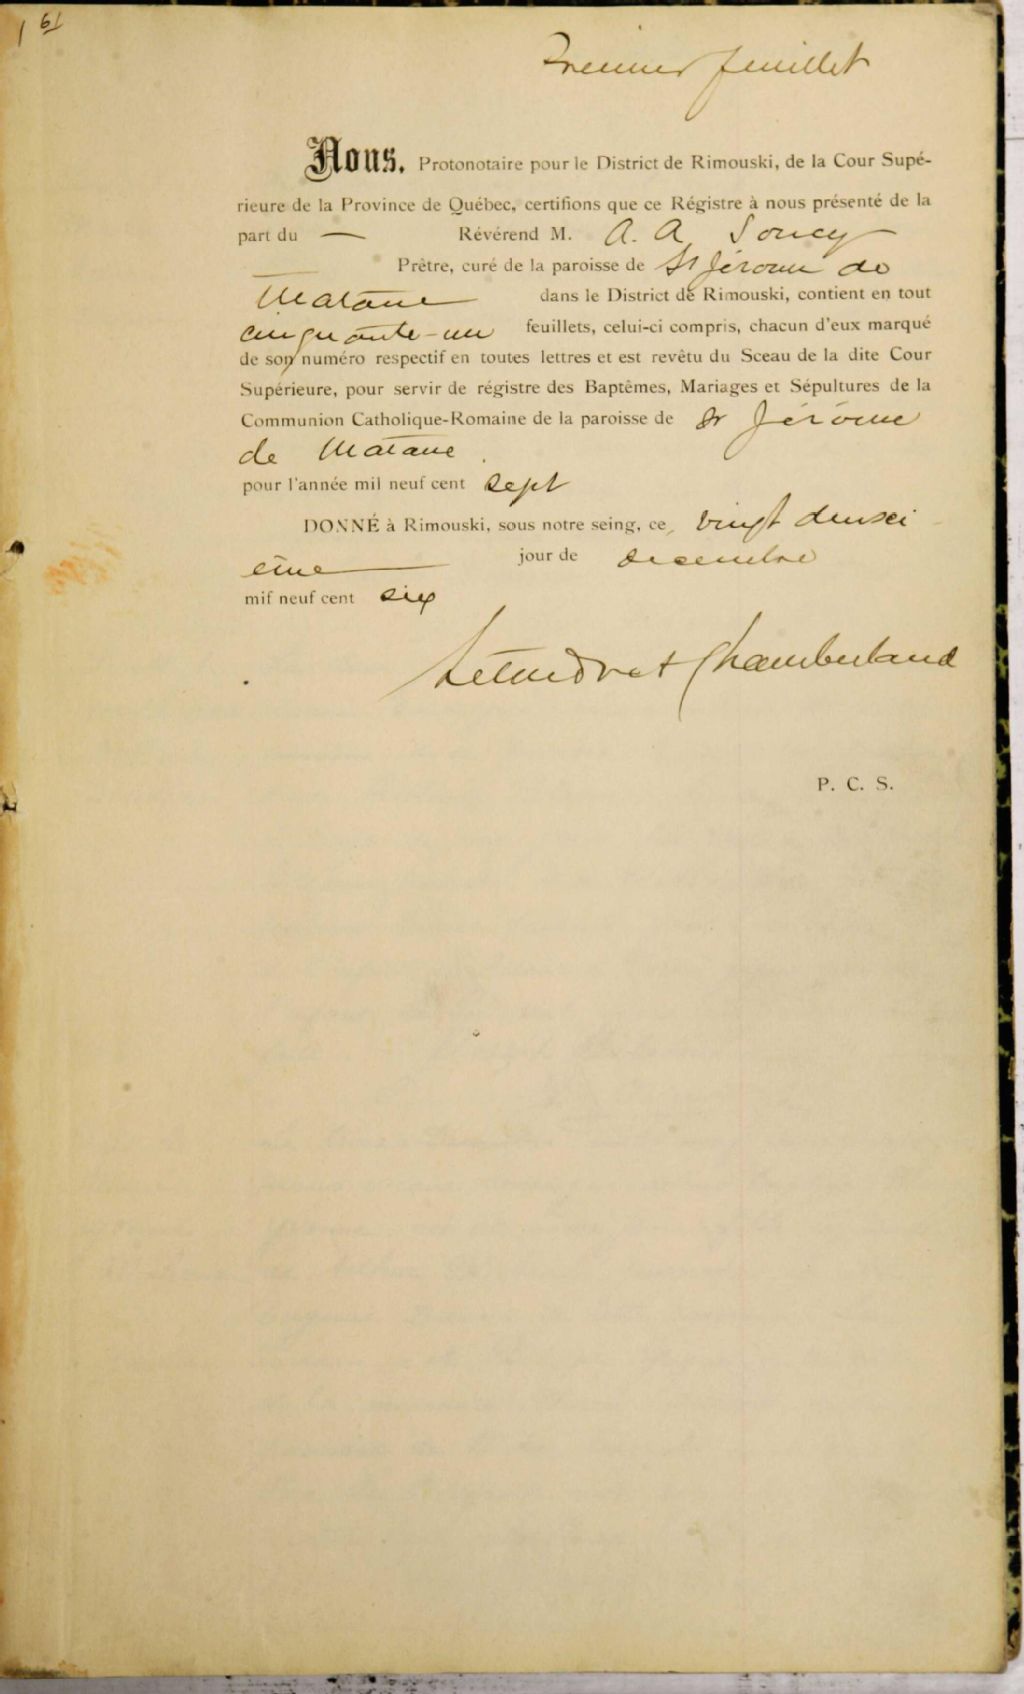 1 61
Premier feuillet
Nous, Protonotaire pour le District de Rimouski, de la Cour Supé-
rieure de la Province de Québec, certifions que ce Régistre à nous présenté de la
part du — Révérend M. A. A. Soucy
Prêtre, curé de la paroisse de St Jérome de
Matane dans le District de Rimouski, contient en tout
cinquante-un feuillets, celui-ci compris, chacun d'eux marqué
de son numéro respectif en toutes lettres et est revêtu du Sceau de la dite Cour
Supérieure, pour servir de régistre des Baptêmes, Mariages et Sépultures de la
Communion Catholique-Romaine de la paroisse de St Jérôme
de Matane
pour l'année mil neuf cent sept
DONNÉ à Rimouski, sous notre seing, ce vingt deuxi
ème jour de decembre
mil neuf cent six
Letendre & Chamberland
P. C. S.